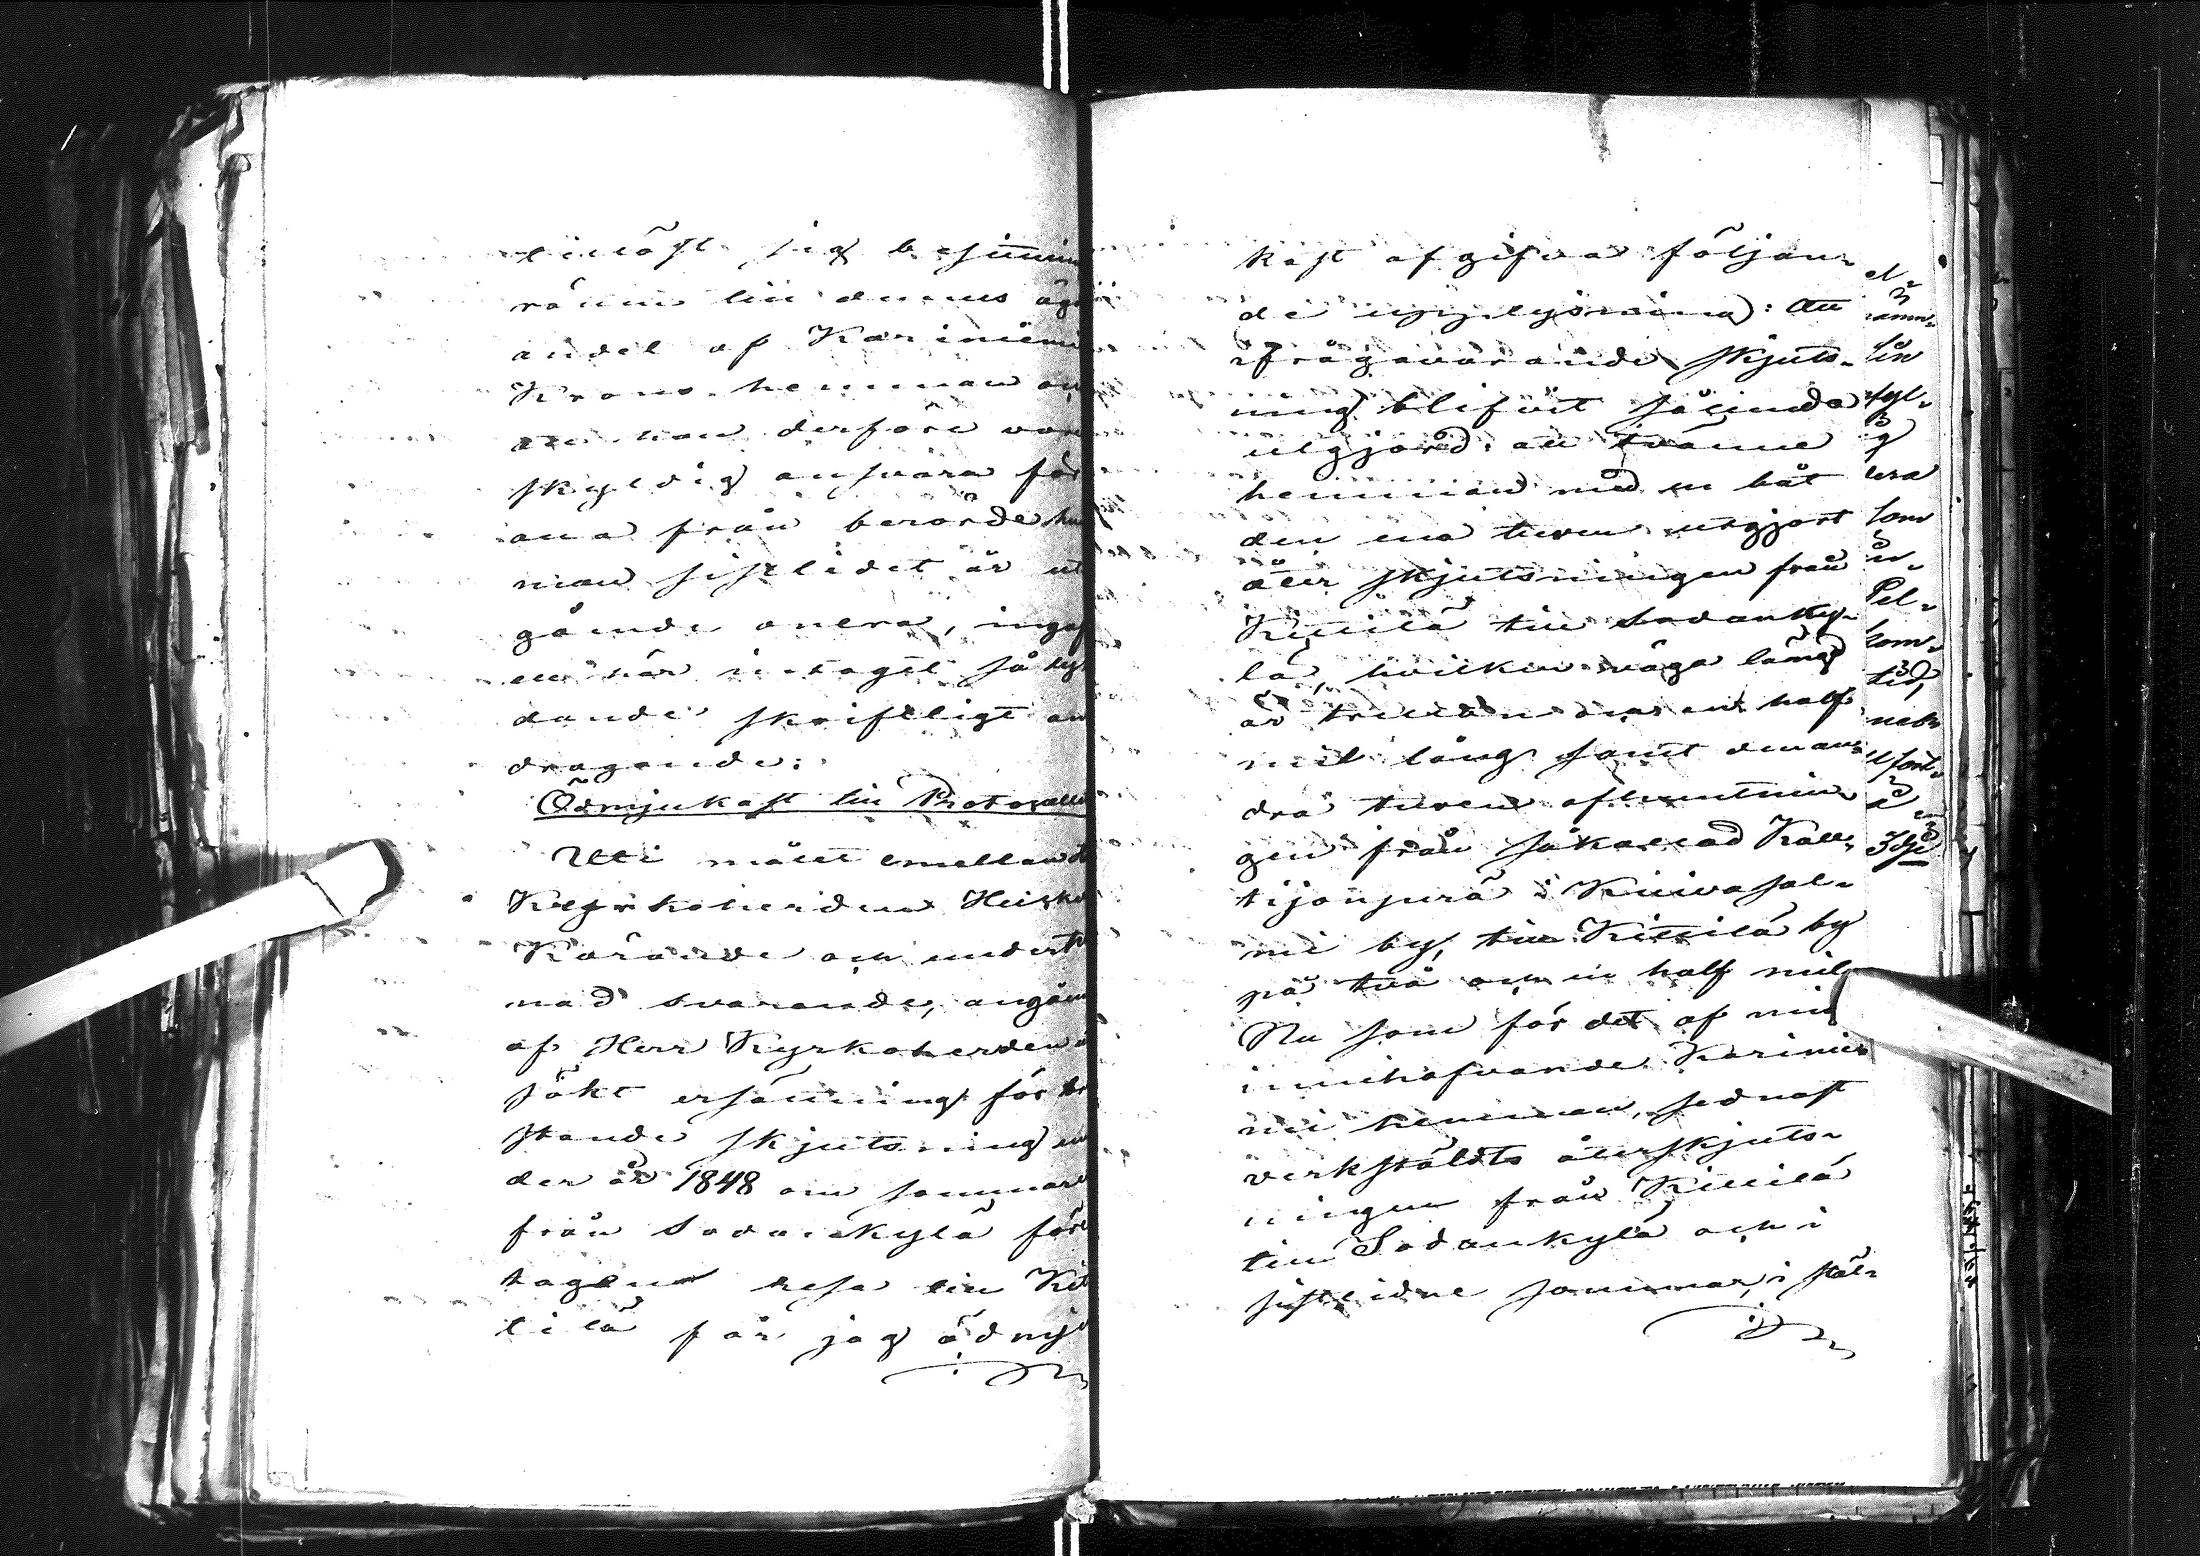 tillöst sig besittnin
rätten till dennes äga
andel af Kariniemi
Krono hemman oc
att han derföre vore
skyldig ansvara för
alla från berörde hem
man sistlidet år ut
gående onera, ingaf
ett här intaget så ly
dande skriftligt an
dragande:
Ödmjukast till Protocollet
Uti målet emellan
Kyrkoherden Heisko
Kärande och underteck
nad svarande, angåen
af Herr Kyrkoherden
sökt ersättning för be
stående skjutsning un
der år 1848 om sommaren
från Sodankylä före
tagen resa till Kit
tilä får jag ödmju
kast afgifva följan-
de upplysning: Att
ifrågavarande skjuts-
ning blifvit sålunda
utgjord: att tvänne
hemman med en båt
den ena turen utgjort
åter skjutsningen från
Kittilä till Sodanky-
lä, hvilken väga längd
är tretton och en half
mil lång samt den an-
dra turen afhemtnin
gen från såkallad Kält-
tijonperä i Kiivasal-
mi by, till Kittilä by
på två och en half mil
Nu som för det af mig
innehafvande Karinie
mi hemman, sednast
verkstäldts återskjuts-
ningen från Kittilä
till Sodankylä och i
sistlidne sommar, i stäl-